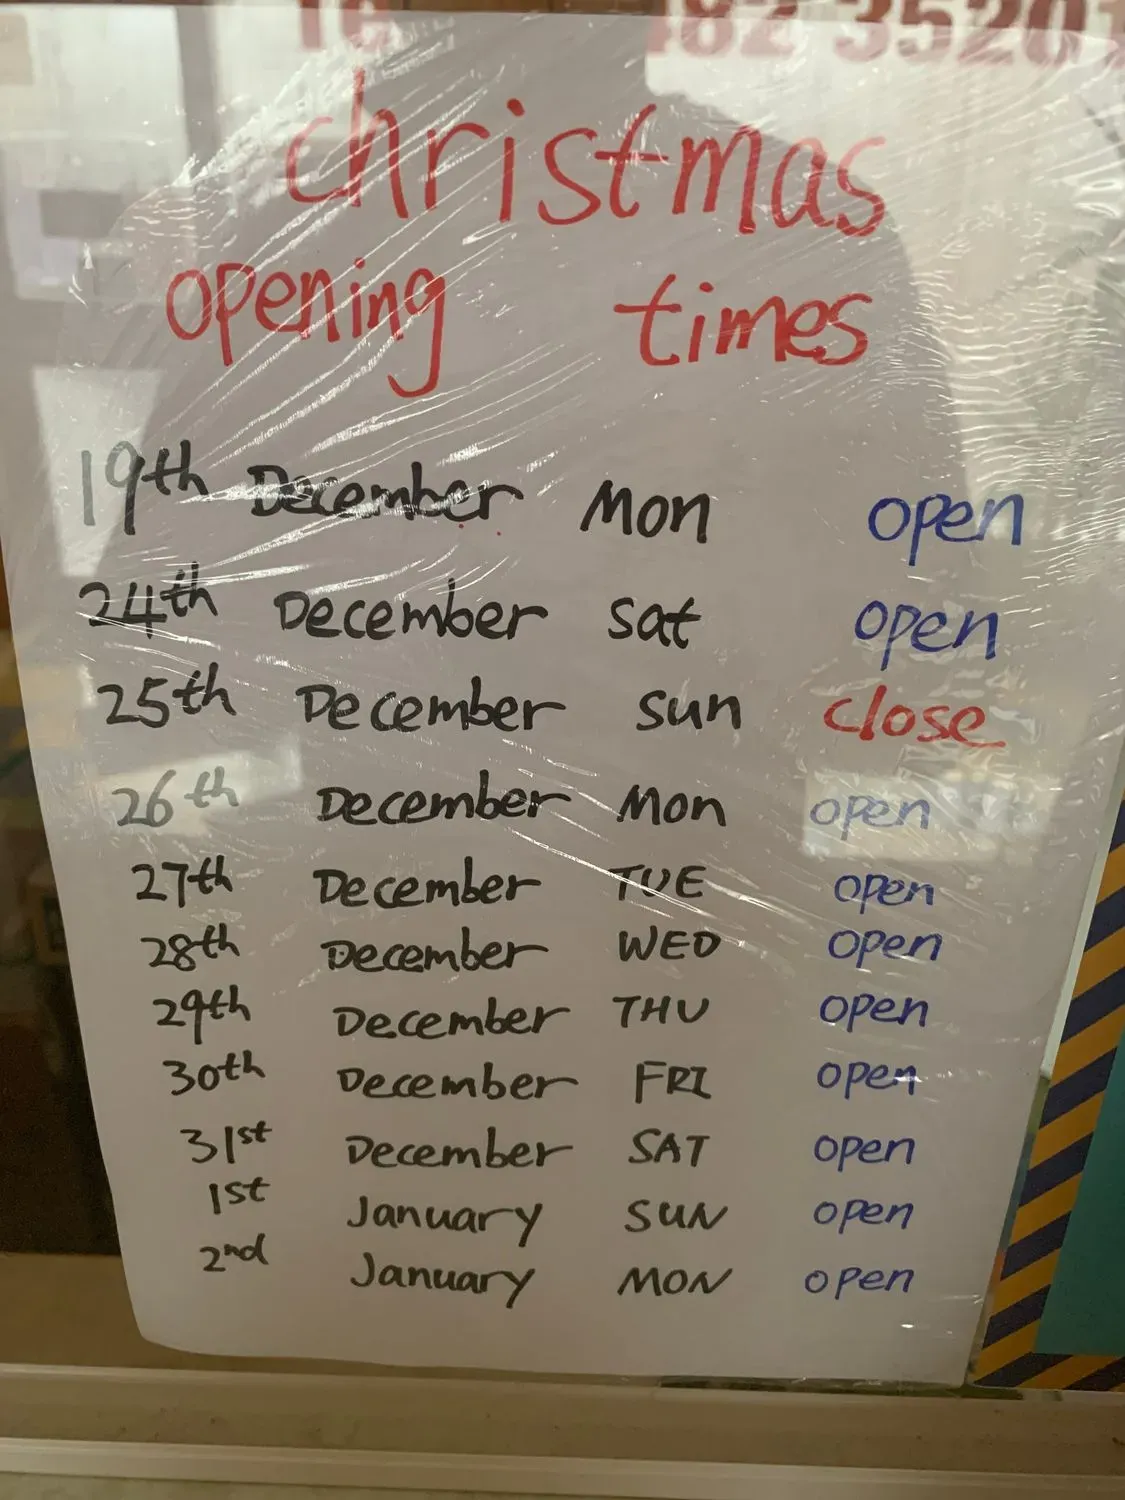 Te 482 35201
christmas
opening times
19th December Mon open
24th December Sat open
25th December Sun close
26th December Mon open
27th December TUE open
28th December WED open
29th December THU open
30th December FRI open
31st December SAT open
1st January SUN open
2nd January MON open